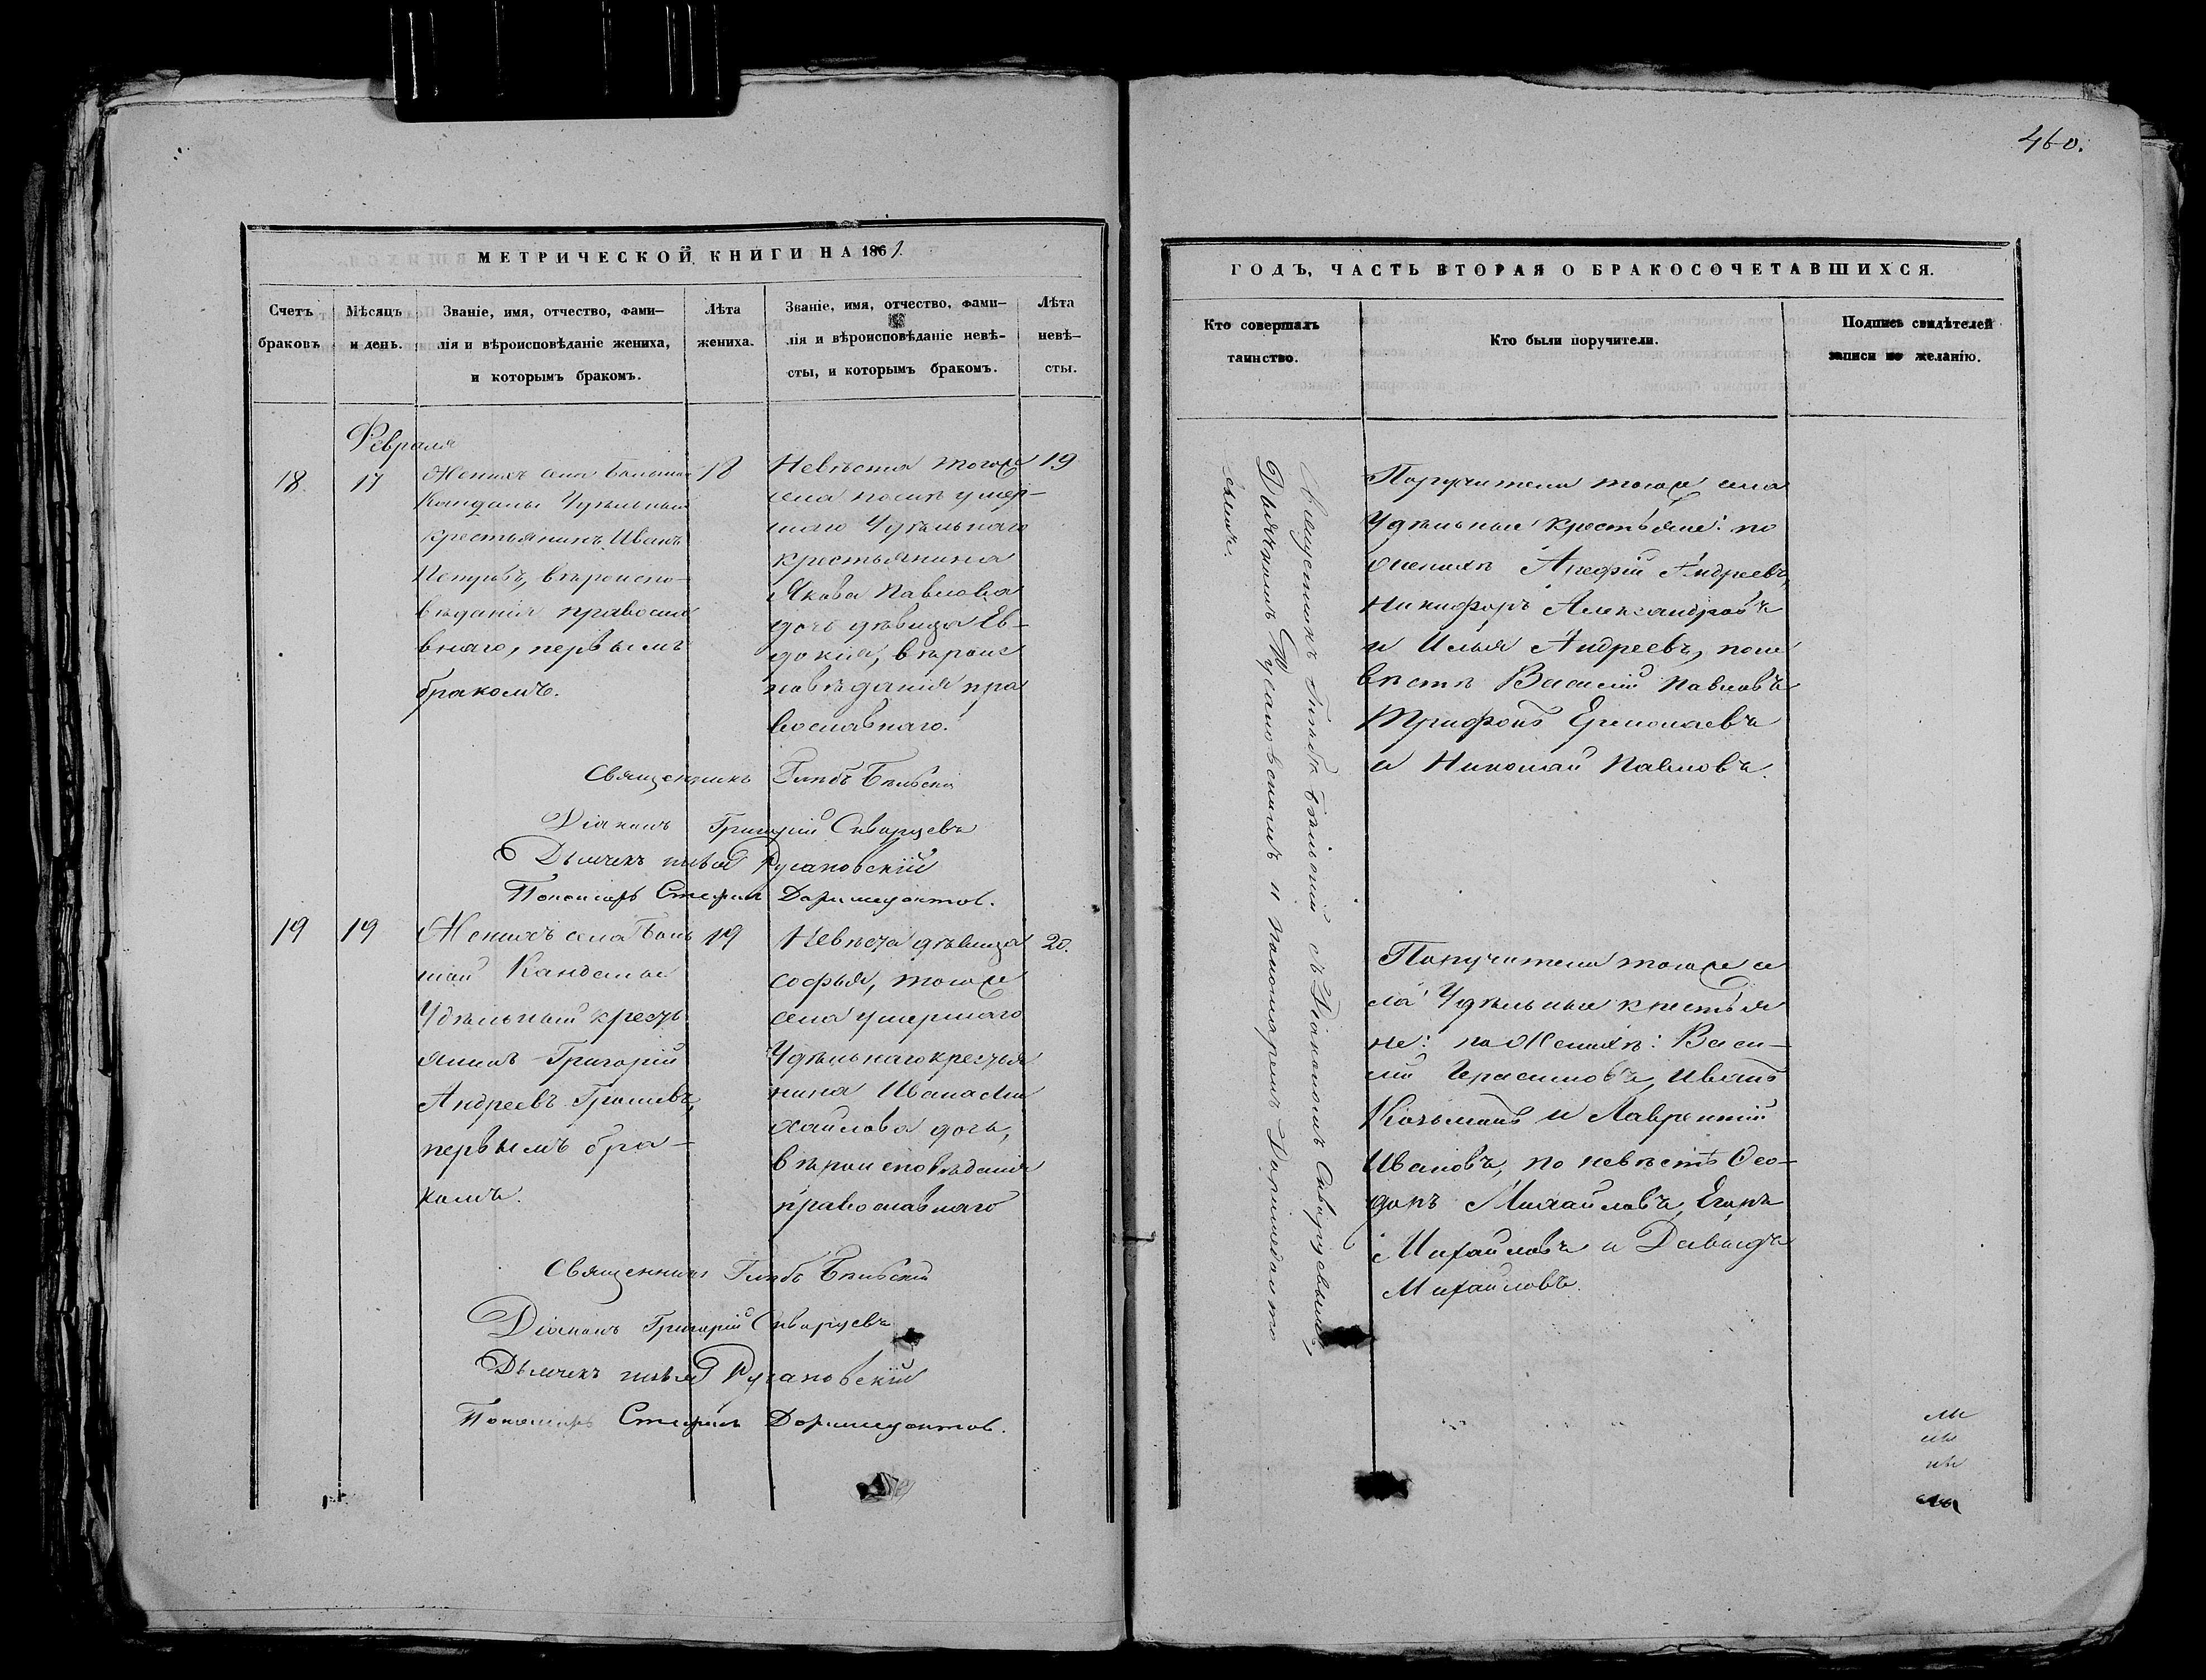 460.
МЕТРИЧЕСКОЙ КНИГИ НА 1861.
Счетъ браковъ.
Мѣсяцъ и день.
Званіе, имя, отчество, фами-
лія и вѣроисповѣданіе жениха,
и которымъ бракомъ.
Лѣта жениха.
Званіе, имя, отчество, фами-
лія и вѣроисповѣданіе невѣ-
сты, и которымъ бракомъ.
Лѣта невѣ-
сты.
Февраля
18.
17
Женихъ села Большой
Кандалы Удѣльный
крестьянинъ Иванъ
Петровъ, вѣроиспо-
вѣданія правосла
внаго, первымъ
бракомъ.
18
Невѣста тогоже
села послѣ умер-
шаго Удѣльнаго
крестьянина
Якова Павлова
дочь дѣвица Ев-
докия, вѣроис
повѣданія пра
вославнаго.
19
Священникъ Глѣбъ Бѣльскій
Діаконъ Григорій Скворцевъ
Дьячекъ Русановскій
Пономарь Стефанъ Доримедонтов.
19
19
Женихъ села Боль
шой Кандалы
Удѣльный кресть
янинъ Григорій
Андреевъ
первымъ бра-
комъ.
19
Невѣста дѣвица
Софья, тогоже
села умершаго
Удѣльнаго крестья
нина Ивана Ми
хайлова дочь,
вѣроисповѣданія
православнаго
20.
Священникъ Глѣбъ Бѣльскій
Діаконъ Григорій Скворцевъ
Дьячекъ Русановскій
Пономарь Стефанъ Доримедонтов.
ГОДЪ, ЧАСТЬ ВТОРАЯ О БРАКОСОЧЕТАВШИХСЯ.
Кто совершалъ
таинство.
Кто были поручители.
Подпись свидѣтелей
записи по желанію.
Священникъ Глѣбъ Бѣльскій съ Діакономъ Скворцевымъ,
Дьячкомъ Русановскимъ и Пономаремъ Доримедонто
вымъ.
Поручители тогоже села
Удѣльные крестьяне: по
женихѣ Арефій Андреевъ,
Никифоръ Александровъ
и Илья Андреевъ, поне
вѣстѣ Василій Павловъ
Трифонъ Ермолаевъ
и Николай Павловъ.
Поручители тогоже се
ла Удѣльные крестья
не: по Женихѣ: Васи-
лій Герасимовъ, Иванъ
Козьминъ и Лаврентій
Ивановъ, по невѣстѣ Ѳео-
доръ Михайловъ, Егоръ
Михайловъ и Давыдъ
Михайловъ.